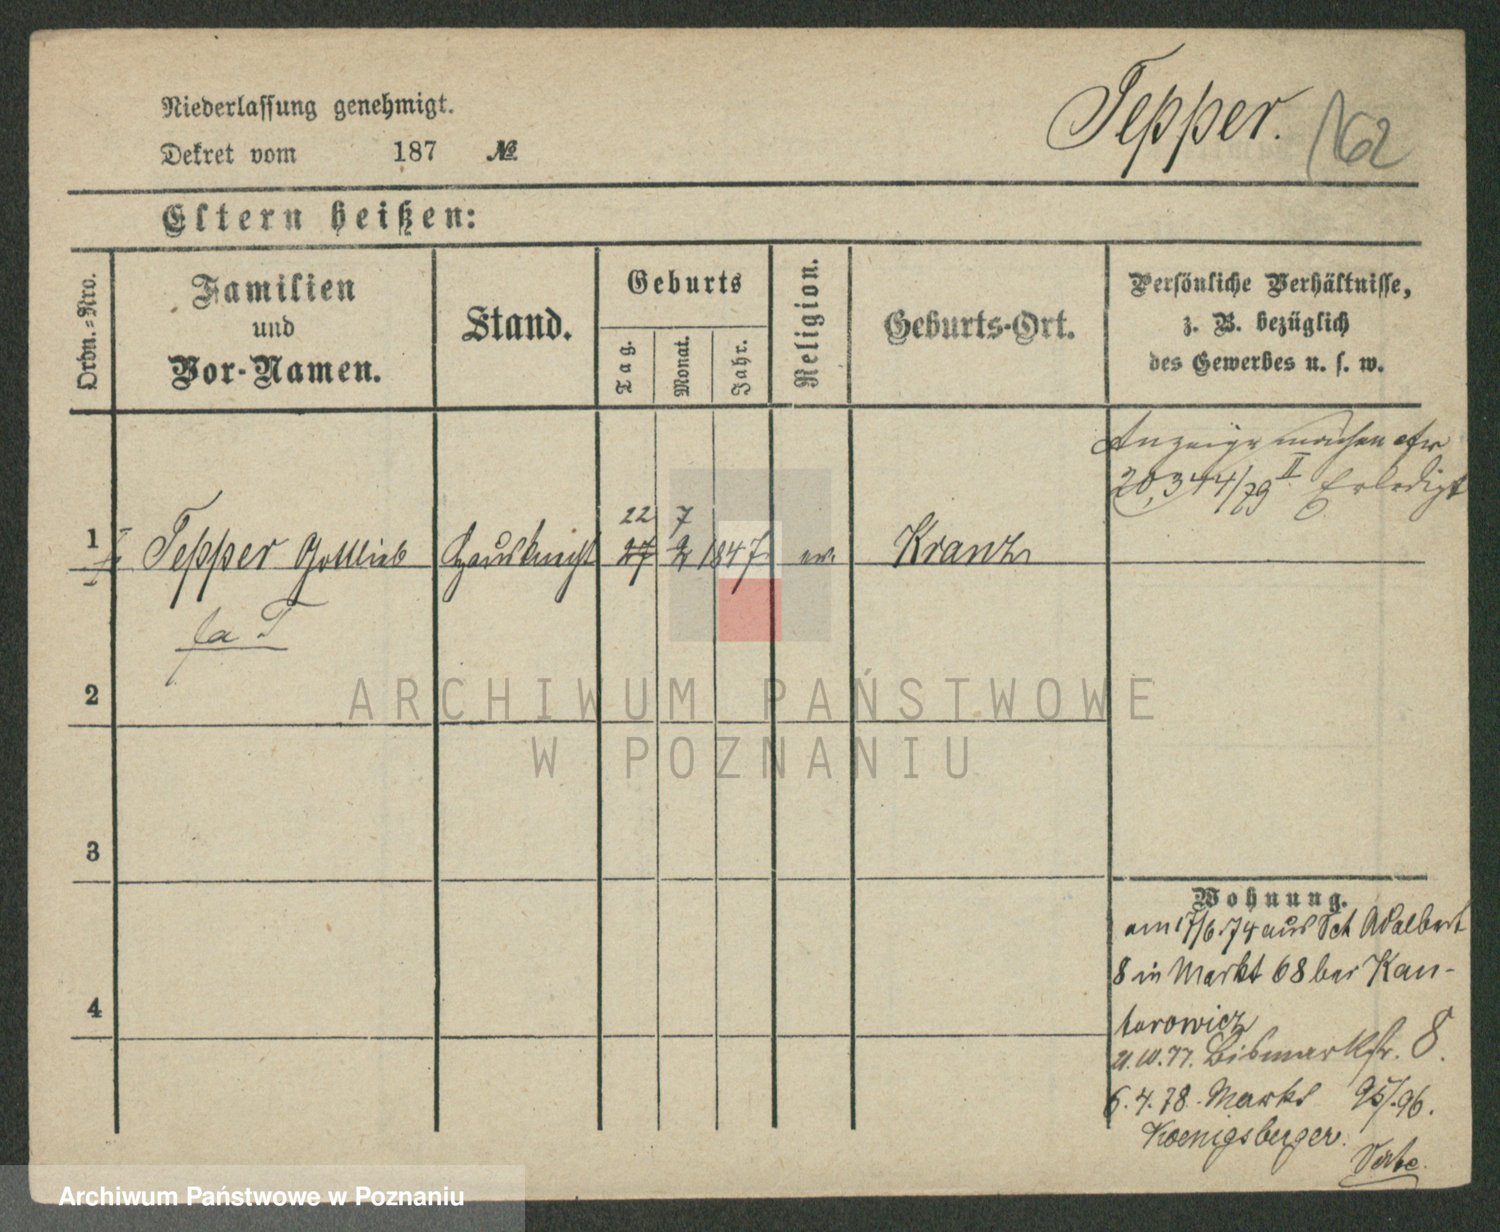 Niederlassung genehmigt.
Dekret vom 187 №
Tepper.
162
Eltern heißen:
Ordn.-Nro.
Familien
und
Vor-Namen.
Stand.
Geburts
Tag.
Monat.
Jahr.
Religion.
Geburts-Ort.
Persönliche Verhältnisse,
z. B. bezüglich
des Gewerbes u. s. w.
Anzeige machen
20,344/79 II Erledigt
22 7
1 Tepper Gottlieb Hausknecht 27 2 1847 ev. Kranz
fa T
2
3
4
ARCHIWUM PAŃSTWOWE
W POZNANIU
Wohnung.
am 17/6.74 aus Sct Adalbert
8 in Markt 68 bei Kan-
torowicz
21.10.77. Bismarkstr. 8.
6.4.78. Markt 95/96.
Koenigsberger.
Archiwum Państwowe w Poznaniu